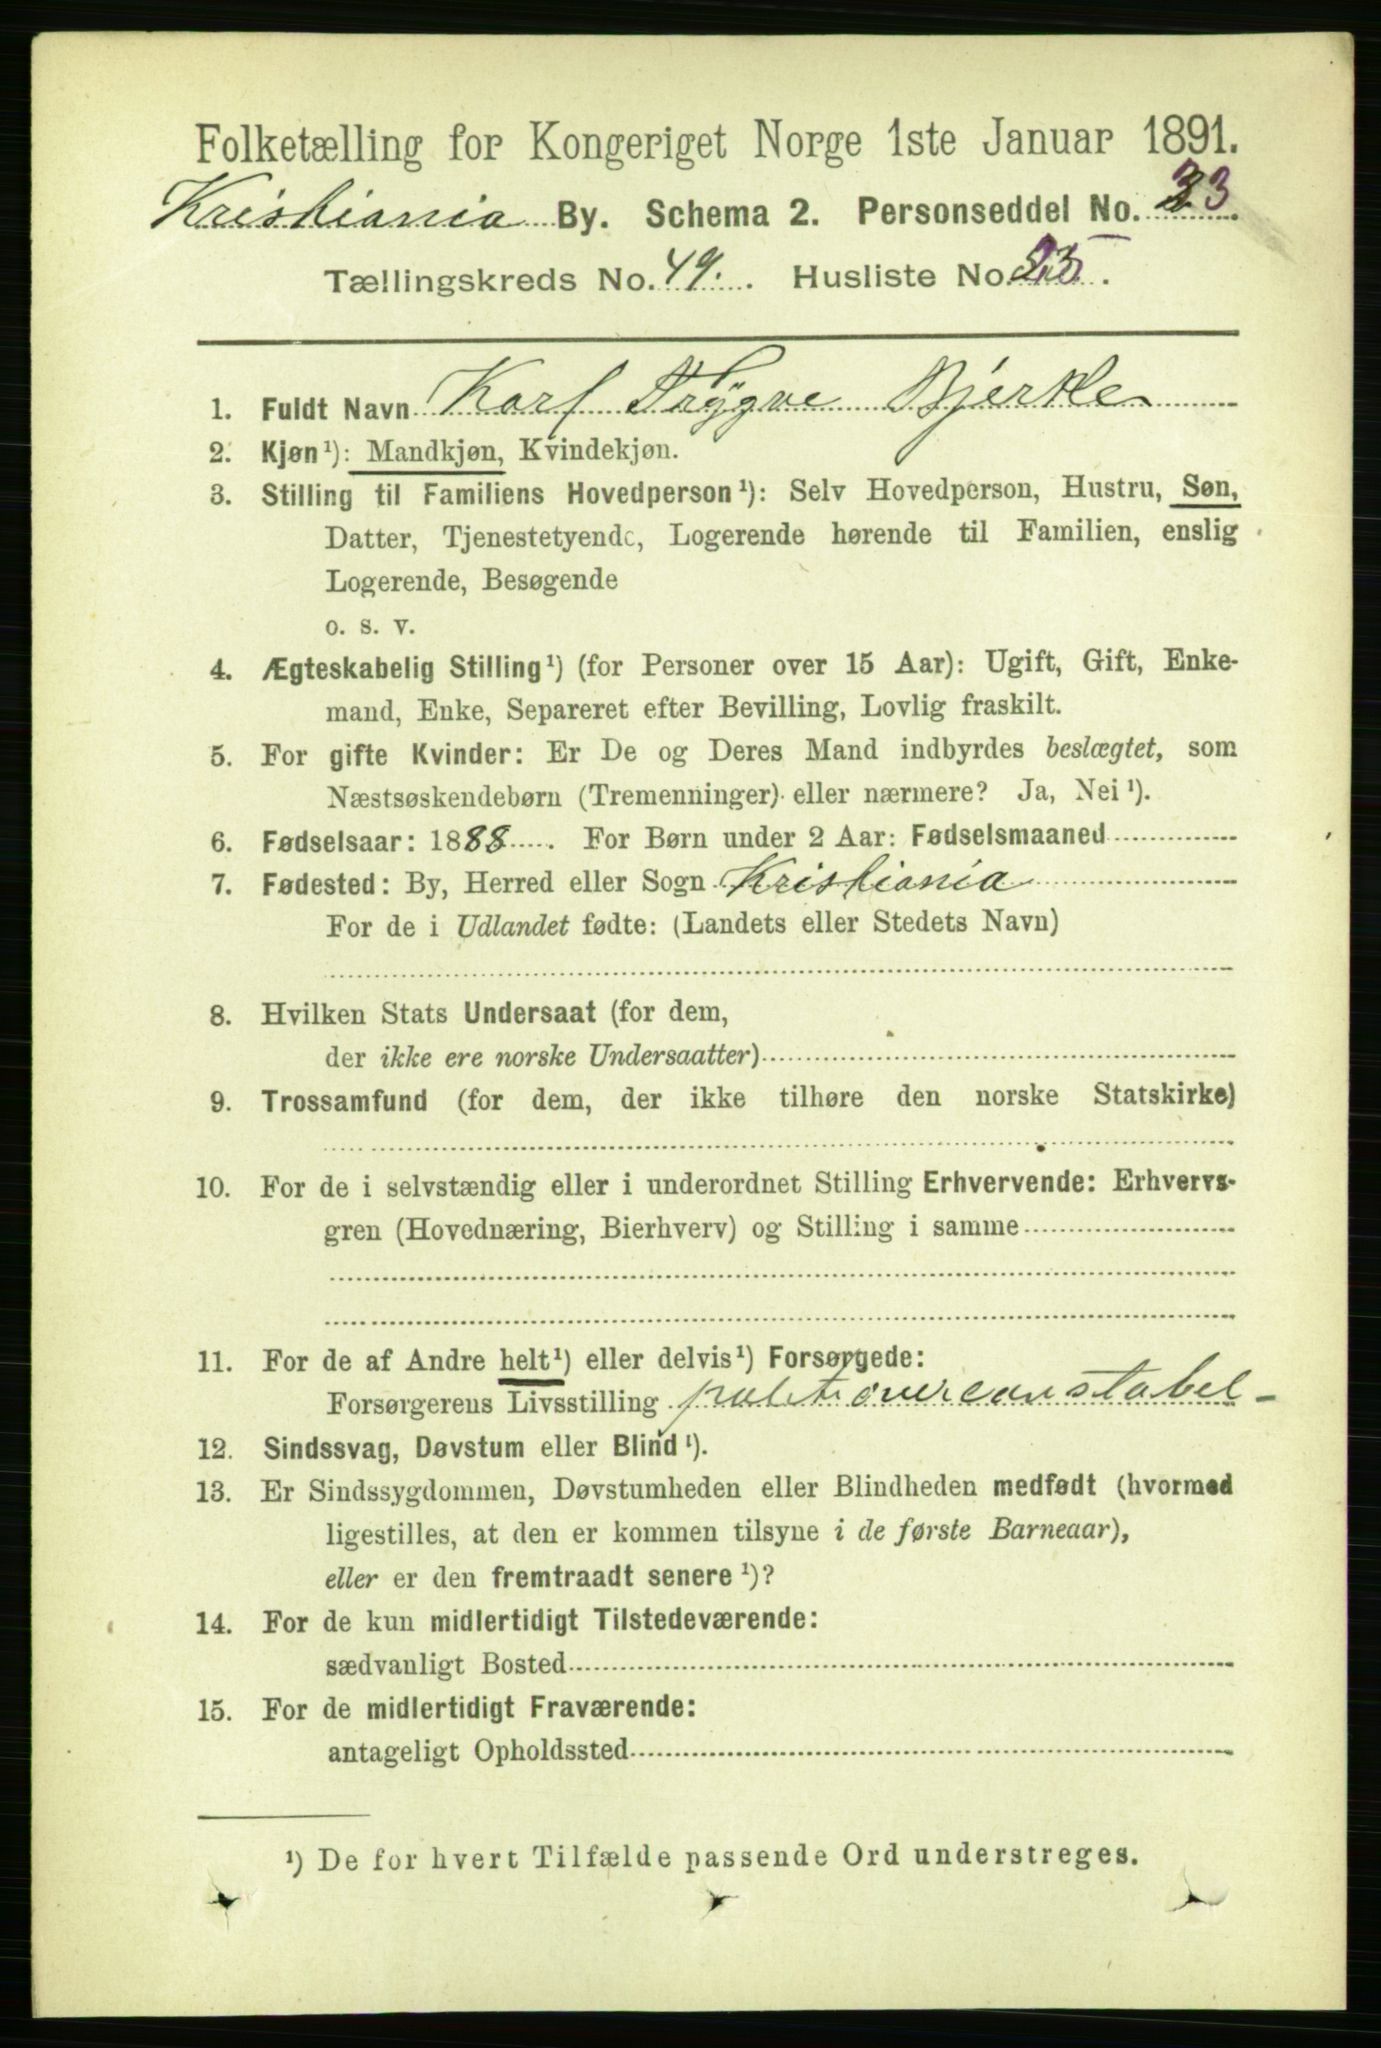 Folketælling for Kongeriget Norge 1ste Januar 1891.
Kristiania By. Schema 2. Personseddel No. 33.
Tællingskreds No. 49. Husliste No. 23.
1. Fuldt Navn Karl Trygve Bjerke
2. Kjøn ¹): Mandkjøn, Kvindekjøn.
3. Stilling til Familiens Hovedperson ¹): Selv Hovedperson, Hustru, Søn,
Datter, Tjenestetyende, Logerende hørende til Familien, enslig
Logerende, Besøgende
o. s. v.
4. Ægteskabelig Stilling ¹) (for Personer over 15 Aar): Ugift, Gift, Enke-
mand, Enke, Separeret efter Bevilling, Lovlig fraskilt.
5. For gifte Kvinder: Er De og Deres Mand indbyrdes beslægtet, som
Næstsøskendebørn (Tremenninger) eller nærmere? Ja, Nei ¹).
6. Fødselsaar: 1888. For Børn under 2 Aar: Fødselsmaaned
7. Fødested: By, Herred eller Sogn Kristiania
For de i Udlandet fødte: (Landets eller Stedets Navn)
8. Hvilken Stats Undersaat (for dem,
der ikke ere norske Undersaatter)
9. Trossamfund (for dem, der ikke tilhøre den norske Statskirke)
10. For de i selvstændig eller i underordnet Stilling Erhvervende: Erhvervs-
gren (Hovednæring, Bierhverv) og Stilling i samme
11. For de af Andre helt ¹) eller delvis ¹) Forsørgede:
Forsørgerens Livsstilling politioverconstabel -
12. Sindssvag, Døvstum eller Blind ¹).
13. Er Sindssygdommen, Døvstumheden eller Blindheden medfødt (hvormed
ligestilles, at den er kommen tilsyne i de første Barneaar),
eller er den fremtraadt senere ¹)?
14. For de kun midlertidigt Tilstedeværende:
sædvanligt Bosted
15. For de midlertidigt Fraværende:
antageligt Opholdssted
¹) De for hvert Tilfælde passende Ord understreges.